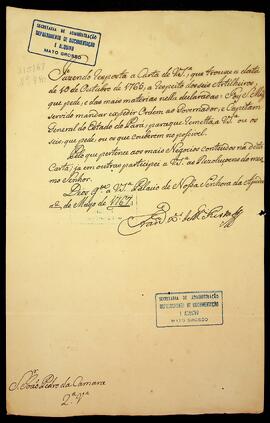 SECRETARIA DE ADMINISTRAÇÃO
DEPARTAMENTO DE DOCUMENTAÇÃO
E ARQUIVO
MATO GROSSO
Fazendo resposta a Carta de V.S.ª, que trouxe a data
de 10 de Outubro de 1766, a respeito dos seis Artilheiros,
que pede, e das mais materias nella declaradas: Foy S. Mag.e
servido mandar expedir Ordem ao Governador, e Capitam
General do Estado do Pará, para que remetta a V.S.ª ou os
seis, que pede, ou os que couberem no possivel.
Pelo que pertence aos mais Negocios conteudos na dita
Carta, já em outras participei a V.S.ª as Rezoluçoens do mes-
mo Senhor.
Deos g.e a V.S.ª Palacio de Nossa Senhora da Ajuda
de Mayo de 1767.
SECRETARIA DE ADMINISTRAÇÃO
DEPARTAMENTO DE DOCUMENTAÇÃO
E ARQUIVO
MATO GROSSO
S.r João Pedro da Camara
2.ª via